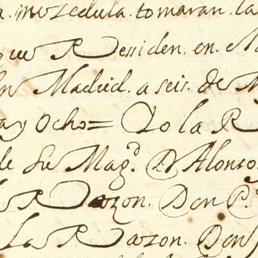 a. mi Zedula. tomaran la
que Rressiden. en M
en Madrid. a seis. de M
ta y Ocho= Yo la R
de Su Mag.d D Alonso.
la Rrazon. Don P.o
La Rrazon. Don